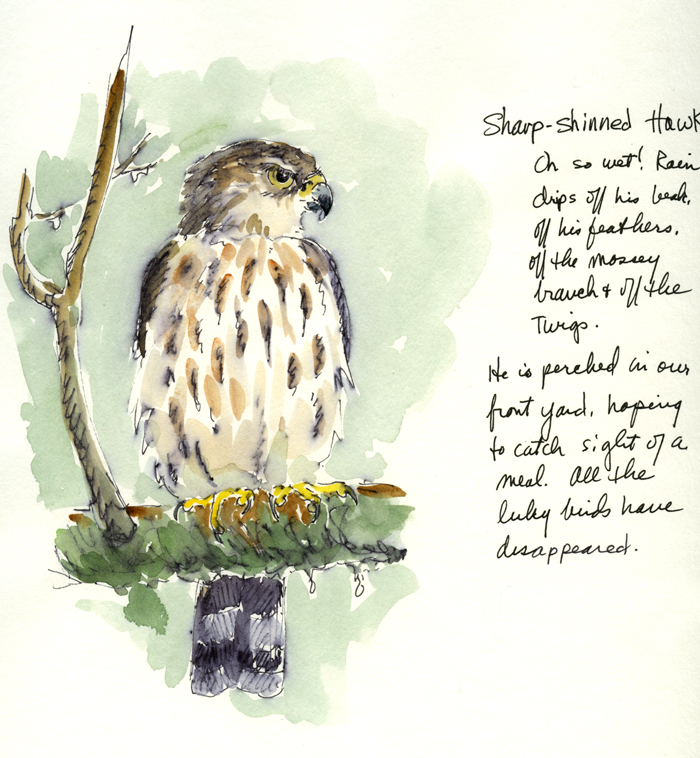 Sharp-shinned Hawk
Oh so wet! Rain
drips off his beak,
off his feathers,
off the mossey
branch & off the
Twigs.
He is perched in our
front yard, hoping
to catch sight of a
meal. All the
birds have
disappeared.